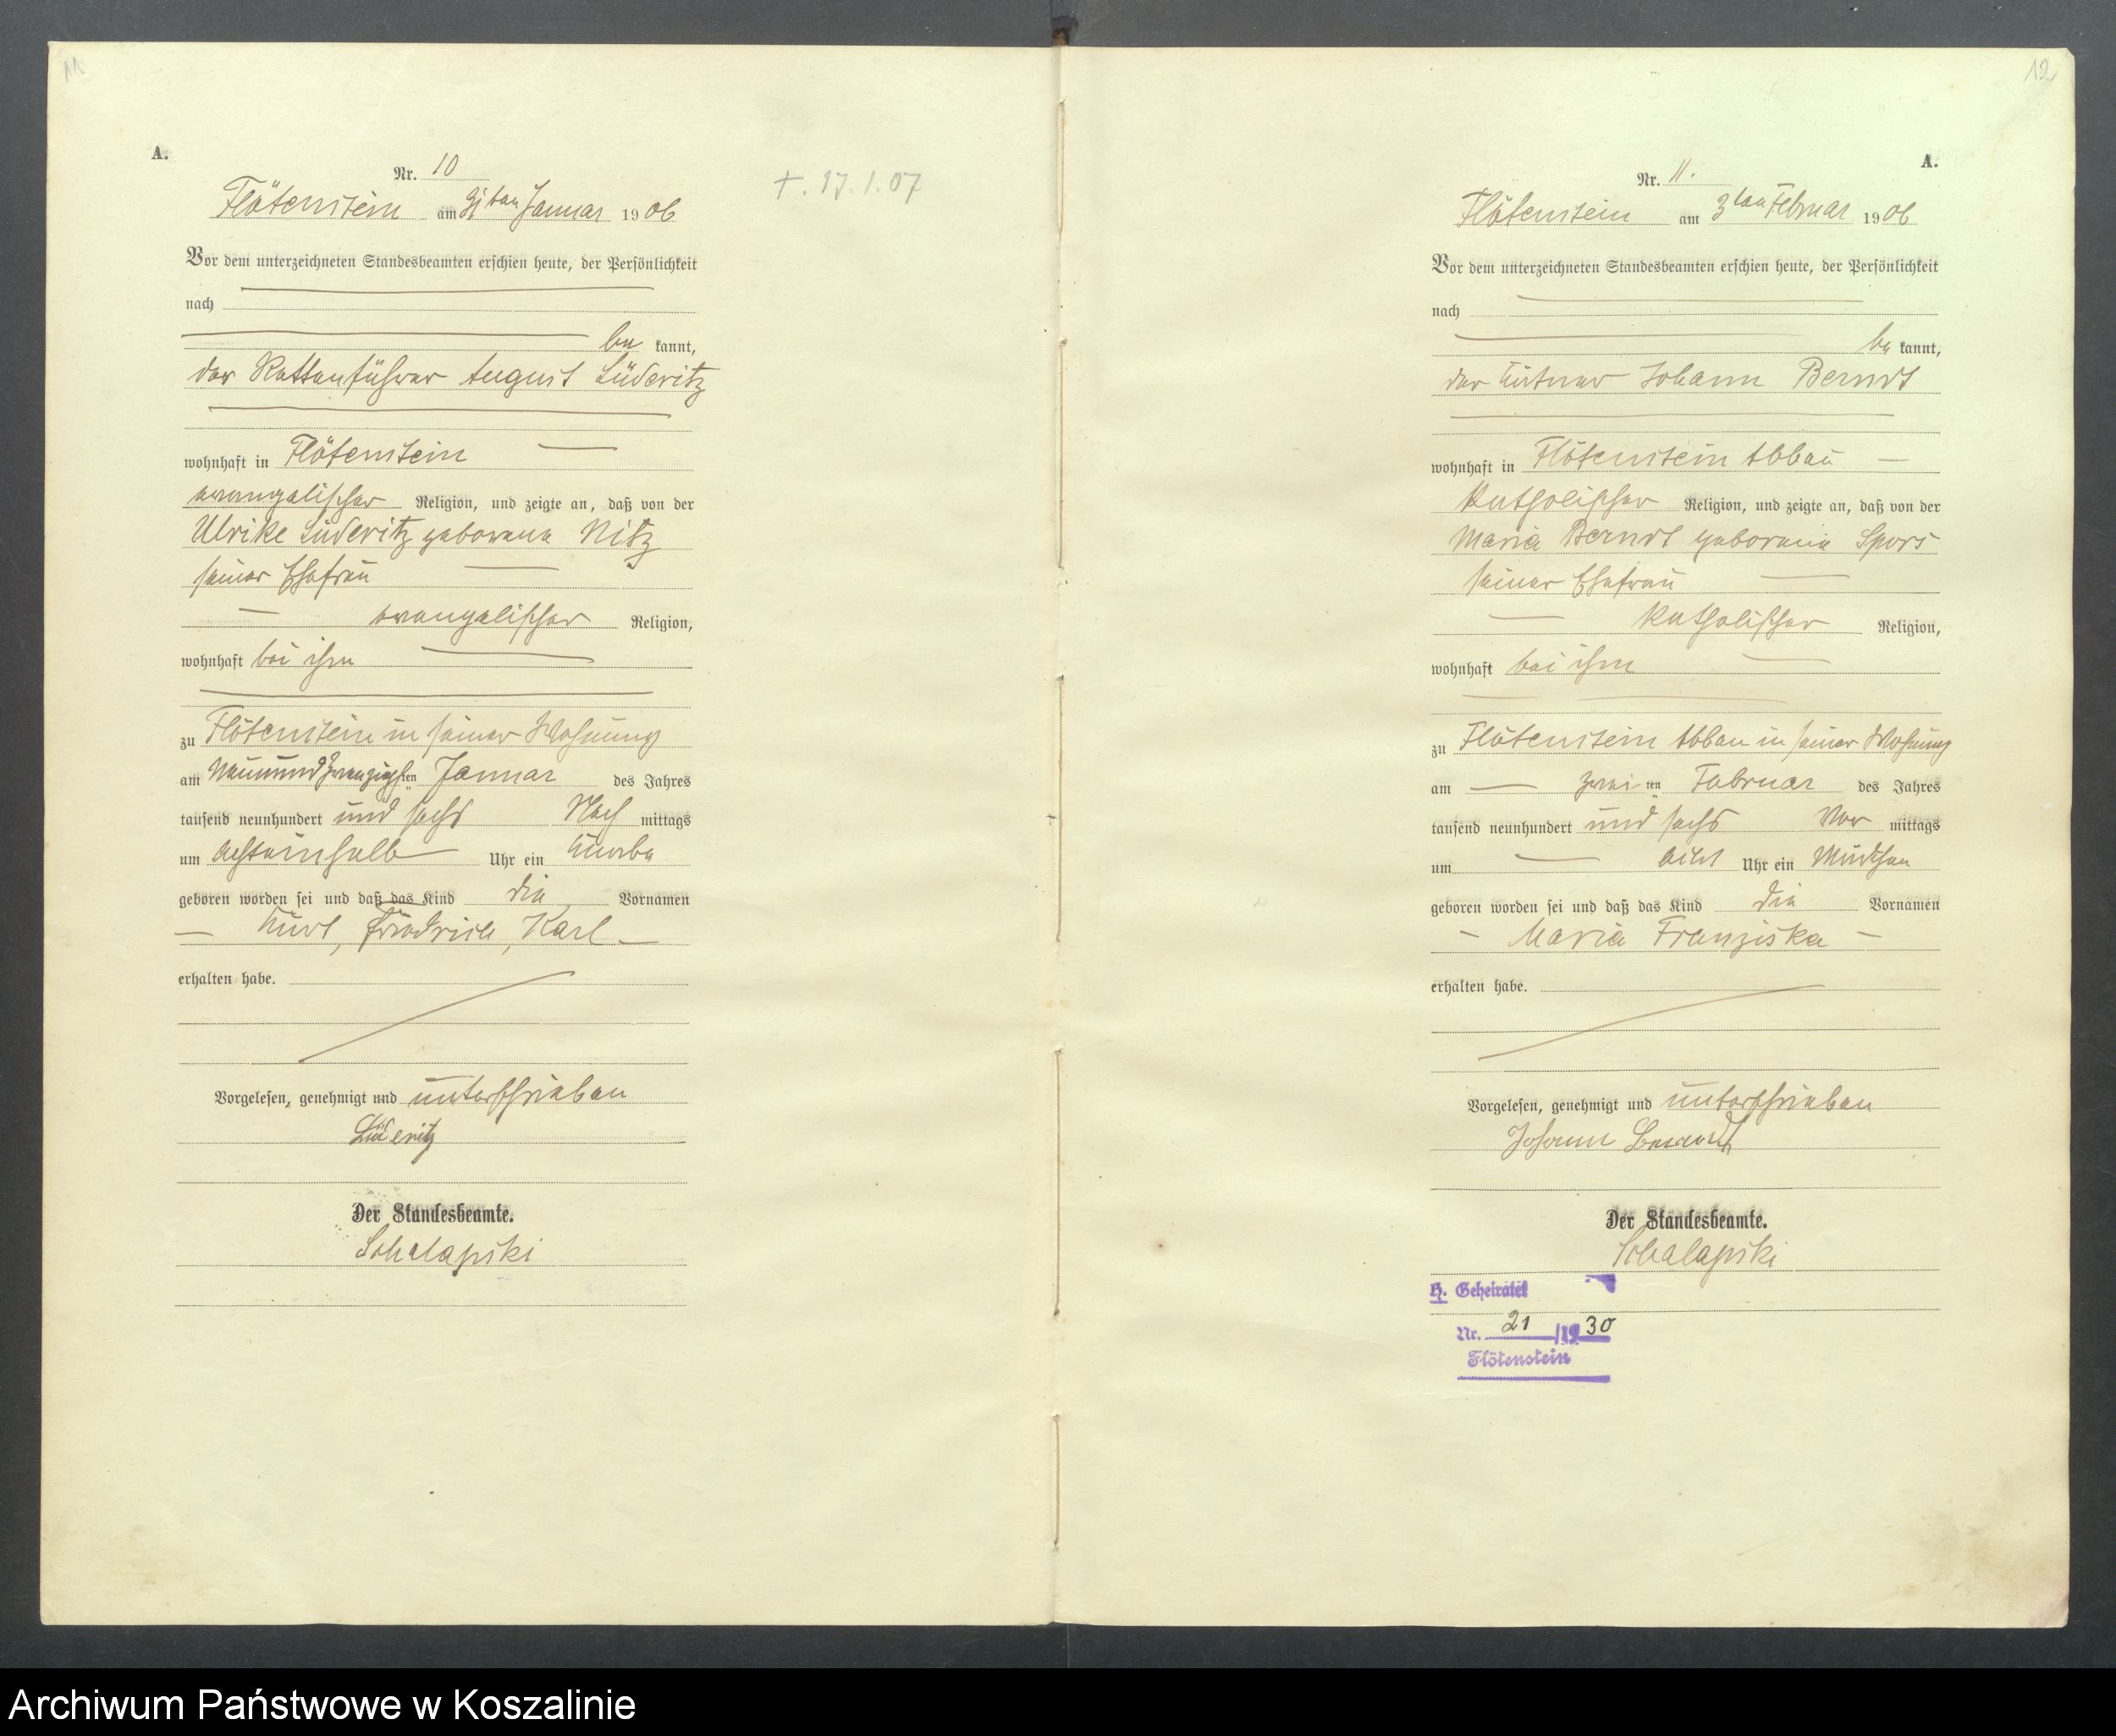 11
A.
Nr. 10
Flötenstein am 31ten Januar 1906
+. 17.1.07
Vor dem unterzeichneten Standesbeamten erschien heute, der Persönlichkeit
nach
be kannt,
der Rottenführer August Lüderitz
wohnhaft in Flötenstein
evangelischer Religion, und zeigte an, daß von der
Ulrike Lüderitz geborene Nitz
seiner Ehefrau
evangelischer Religion,
wohnhaft bei ihm
zu Flötenstein in seiner Wohnung
am Neunundzwanzigsten Januar des Jahres
tausend neunhundert und sechs Nach mittags
um achteinhalb Uhr ein Knabe
geboren worden sei und daß das Kind die Vornamen
Kurt, Friedrich, Karl
erhalten habe.
Vorgelesen, genehmigt und unterschrieben
Lüderitz
Der Standesbeamte.
Schalapski
12
A.
Nr. 11.
Flötenstein am 3ten Februar 1906
Vor dem unterzeichneten Standesbeamten erschien heute, der Persönlichkeit
nach
be kannt,
der Johann Berndt
wohnhaft in Flötenstein Abbau
Katholischer Religion, und zeigte an, daß von der
Maria Berndt geborene Spors
seiner Ehefrau
Katholischer Religion,
wohnhaft bei ihm
zu Flötenstein Abbau in seiner Wohnung
am zwei ten Februar des Jahres
tausend neunhundert und sechs Vor mittags
um acht Uhr ein Mädchen
geboren worden sei und daß das Kind die Vornamen
Maria Franziska
erhalten habe.
Vorgelesen, genehmigt und unterschrieben
Johann Berndt
Der Standesbeamte.
Schalapski
H. Geheiratet
Nr. 21 /1930
Flötenstein
Archiwum Państwowe w Koszalinie